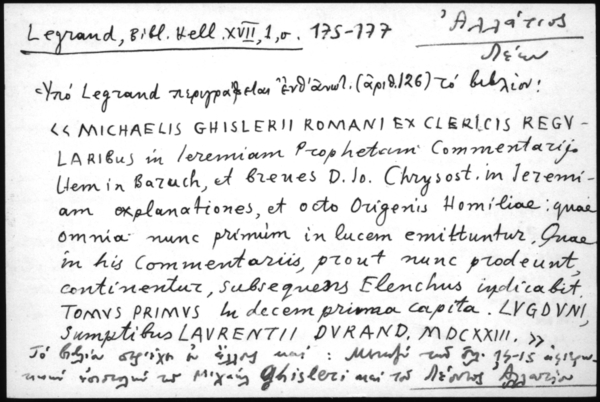 Legrand, Bibl. Hell. XVII, 1, σ. 175-177
Ἀλλάτιος
Λέων
Ὑπό Legrand περιγράφεται ἐνθ' ἀνωτ. (ἀριθ. 126) τό βιβλίον:
<< MICHAELIS GHISLERII ROMANI EX CLERICIS REGV-
LARIBUS in Ieremiam Prophetam Commentarij.
Item in Baruch, et breues D. Io. Chrysost. in Ieremi-
am explanationes, et octo Origenis Homiliae: quae
omnia nunc primùm in lucem emittuntur. Quae
in his Commentariis, prout nunc prodeunt,
continentur, subsequens Elenchus indicabit.
TOMVS PRIMVS In decem prima capita. LVGDVNI,
Sumptibus LAVRENTII DVRAND. MDCXXIII. >>
Τό βιβλίον περιέχει ἐν ἄλλοις καί: Μεταξύ τῶν σελ. 14-15
ἐπιστολή τοῦ Μιχαήλ Ghisleri καί τοῦ Λέοντος Ἀλλατίου